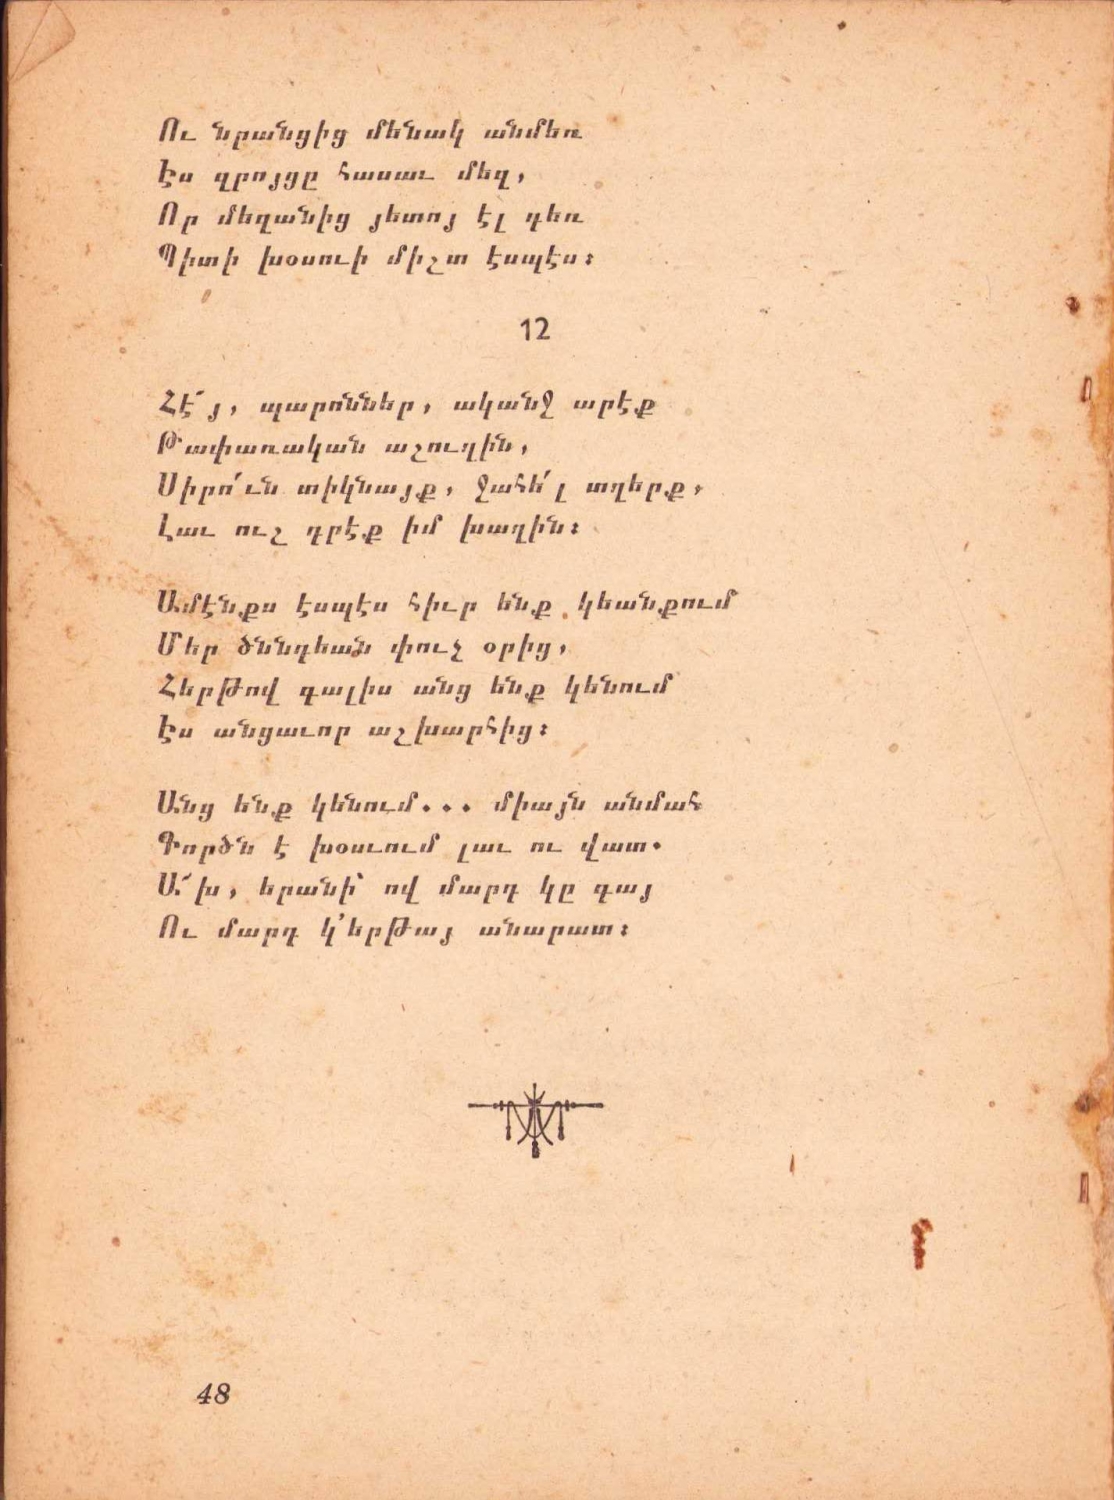 Ու նրանցից մենակ անմեռ
Էս զրոյցը հասաւ մեզ,
Որ մեզանից յետոյ էլ դեռ
Պիտի խօսուի միշտ էսպէս։
12
Հէ՜յ, պարոններ, ականջ արէք
Թափառական աշուղին,
Սիրո՛ւն տիկնայք, ջահե՛լ տղերք,
Լաւ ուշ դրէք իմ խաղին։
Ամէնքս էսպէս հիւր ենք կեանքում
Մեր ծննդեան փուչ օրից,
Հերթով գալիս անց ենք կենում
Էս անցաւոր աշխարհից։
Անց ենք կենում... միայն անմահ
Գործն է խօսւում լաւ ու վատ.
Ա՜խ, երանի՝ ով մարդ կը գայ
Ու մարդ կ՚երթայ անարատ։
48